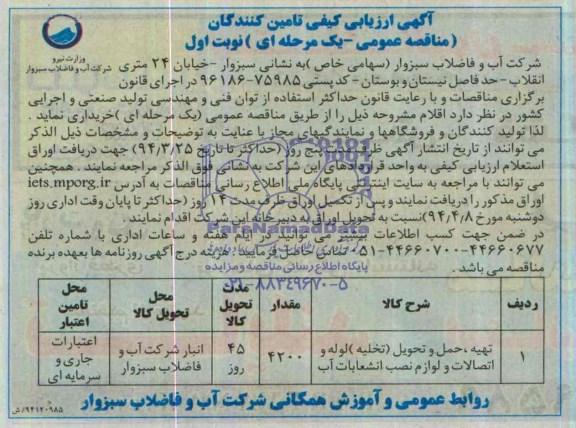 آگهی ارزیابی کیفی تامین کنندگان
(مناقصه عمومی -یک مرحله ای ) نوبت اول
وزارت نیرو
شرکت آب و فاضلاب سبزوار
شرکت آب و فاضلاب سبزوار (سهامی خاص )به نشانی سبزوار -خیابان ۲۴ متری
انقلاب -حد فاصل نیستان و بوستان - کدپستی ۷۵۹۸۵-۹۶۱۸۶ در اجرای قانون
برگزاری مناقصات و با رعایت قانون حداکثر استفاده از توان فنی و مهندسی تولید صنعتی و اجرایی
کشور در نظر دارد اقلام مشروحه ذیل را از طریق مناقصه عمومی (یک مرحله ای )خریداری نماید .
لذا تولید کنندگان و فروشگاهها و نمایندگیهای مجاز با عنایت به توضیحات و مشخصات ذیل الذکر
می توانند از تاریخ انتشار آگهی ظرف مدت پنج روز (حداکثر تا تاریخ ۹۴/۳/۲۵) جهت دریافت اوراق
استعلام ارزیابی کیفی به واحد قراردادهای این شرکت به نشانی فوق الذکر مراجعه نمایند . همچنین
می توانند با مراجعه به سایت اینترنتی پایگاه ملی اطلاع رسانی مناقصات به آدرس iets.mporg.ir
اوراق مذکور را دریافت نمایند و پس از تکمیل اوراق ظرف مدت ۱۴ روز (حداکثر تا پایان وقت اداری روز
دوشنبه مورخ ۹۴/۴/۸)نسبت به تحویل اوراق به دبیرخانه این شرکت اقدام نمایند .
در ضمن جهت کسب اطلاعات بیشتر می توانید در ایام هفته و ساعات اداری با شماره تلفن
۴۴۶۶۰۶۷۷-۴۴۶۶۰۷۰۰-۰۵۱ تماس حاصل فرمایید . هزینه درج آگهی روزنامه ها بعهده برنده
مناقصه می باشد .
ParsNamadData
پایگاه اطلاع رسانی مناقصه و مزایده
۰۲۱-۸۸۳۴۹۶۷۰-۵
ردیف شرح کالا مقدار مدت تحویل کالا محل تحویل کالا محل تامین اعتبار
۱ تهیه ،حمل و تحویل (تخلیه )لوله و اتصالات و لوازم نصب انشعابات آب ۴۲۰۰ ۴۵ روز انبار شرکت آب و فاضلاب سبزوار اعتبارات جاری و سرمایه ای
روابط عمومی و آموزش همگانی شرکت آب و فاضلاب سبزوار
۹۴۱۲۰۹۸۵/ش